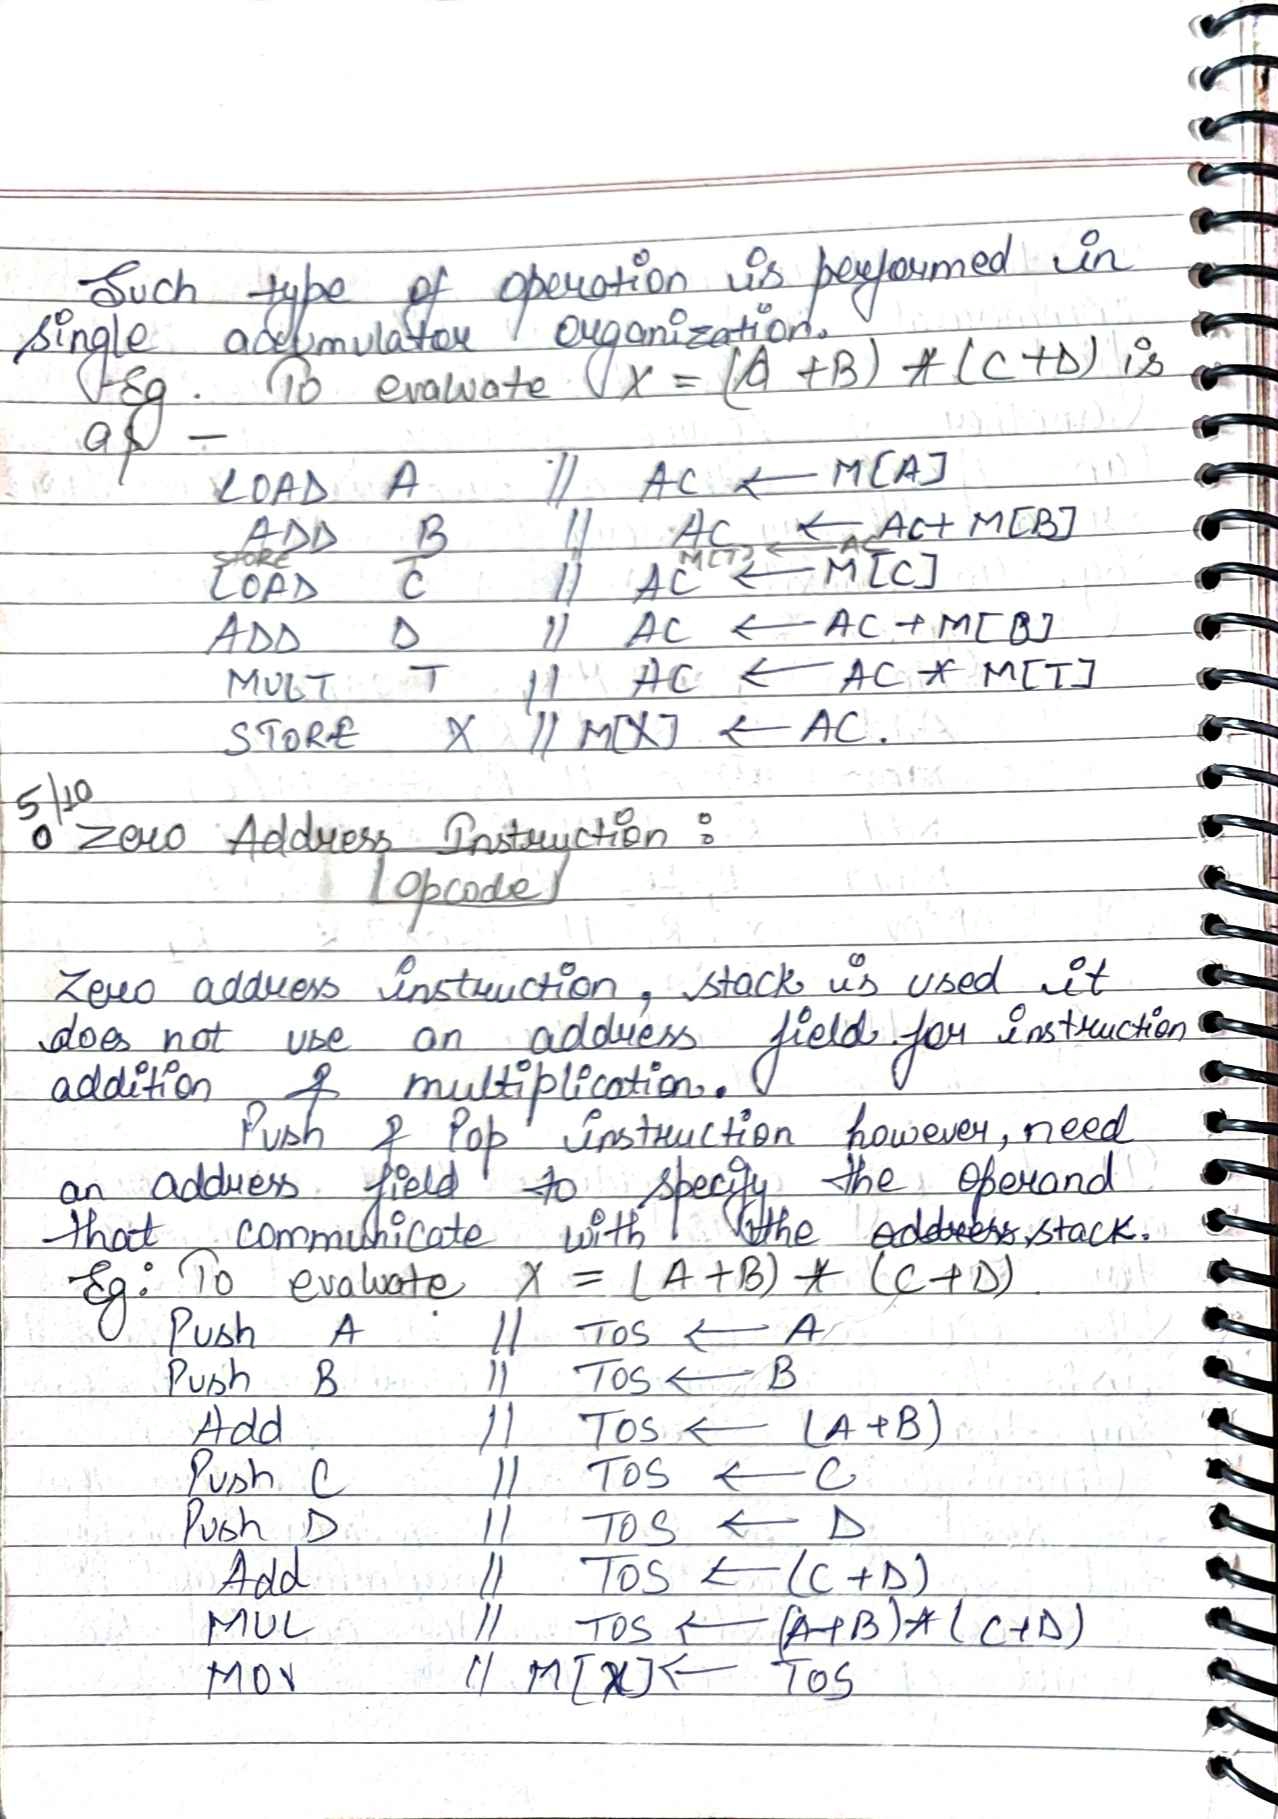 Such type of operation is performed in
single accumulator organization.
Eg. To evaluate X = (A + B) * (C + D) is
as —
LOAD A // AC ← M[A]
ADD B // AC ← AC + M[B]
STORE T M[T] ← AC
LOAD C // AC ← M[C]
ADD D // AC ← AC + M[D]
MULT T // AC ← AC * M[T]
STORE X // M[X] ← AC.
5/10
• Zero Address Instruction :
Opcode
Zero address instruction, stack is used it
does not use an address field for instruction
addition & multiplication.
Push & Pop instruction however, need
an address field to specify the operand
that communicate with the address stack.
Eg: To evaluate X = (A + B) * (C + D)
Push A // TOS ← A
Push B // TOS ← B
Add // TOS ← (A + B)
Push C // TOS ← C
Push D // TOS ← D
Add // TOS ← (C + D)
MUL // TOS ← (A+B) * (C+D)
MOV // M[X] ← TOS